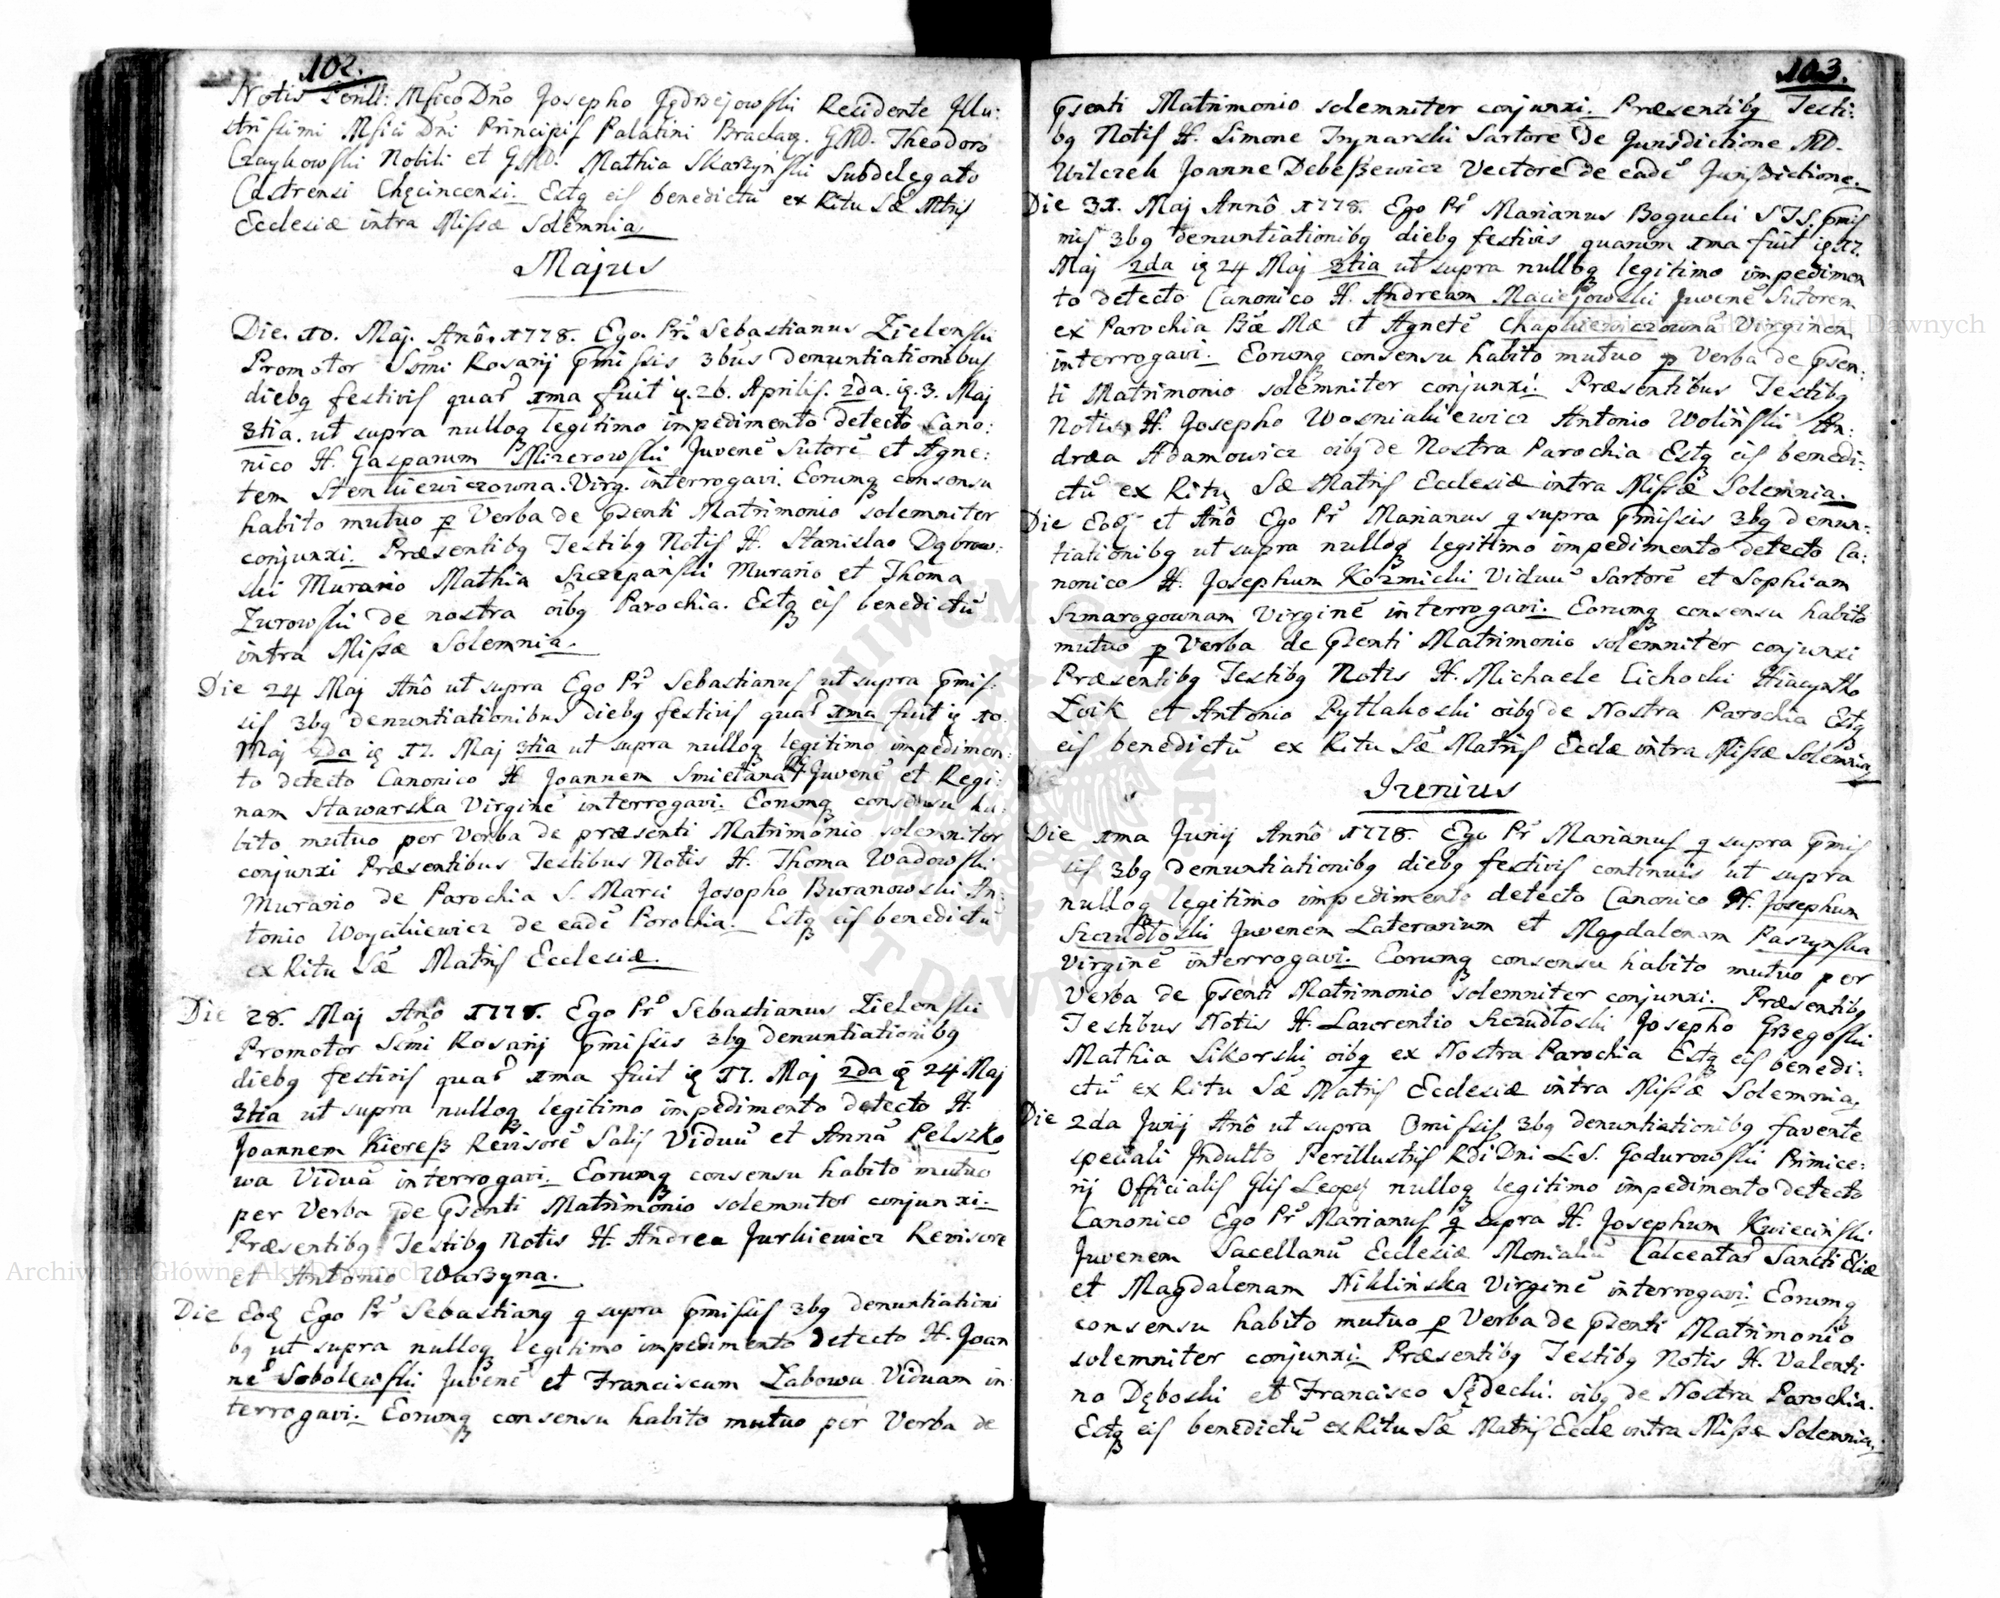 102.
Notis Perill: Mfico Dño Josepho Jędrzejowski Residente Illu:
strissimi Mfici Dni Principis Palatini Braclav. GMD. Theodoro
Czaykowski Nobili et GMD. Mathia Skarzynski Subdelegato
Castrensi Chęcincensi. Estq eis benedictū ex Ritu Sæ Mtris
Ecclesiæ intra Missæ Solemnia.
Majus
Die. 10. Maj. Anô. 1778. Ego. Pr. Sebastianus Zielenski
Promotor Ssmi Rosarij pmissis 3bus denuntiationibus
diebq festivis quar 1ma fuit q. 26. Aprilis. 2da. q. 3. Maj
3tia. ut supra nulloq legitimo impedimento detecto Cano:
nico H. Gasparum Mizerowski Juvenē Sutorē et Agne:
tem Stenkiewiczowna. Virg. interrogavi. Eorumq consensu
habito mutuo p Verba de psenti Matrimonio solemniter
conjunxi. Præsentibq Testibq Notis H. Stanislao Dąbrow:
ski Murario Mathia Szczepanski Murario et Thoma
Zurowski de nostra oibq Parochia. Estq eis benedictū
intra Missæ Solemnia.
Die 24 Maj Anô ut supra Ego Pr Sebastianus ut supra pmis:
sis 3bq denuntiationibus diebq festivis quar 1ma fuit q 10
Maj 2da q 17. Maj 3tia ut supra nulloq legitimo impedimen:
to detecto Canonico H Joannem Smietana Juvenē et Regi:
nam Stawarska Virginē interrogavi. Eorumq consensu ha:
bito mutuo per Verba de præsenti Matrimonio solemniter
conjunxi Præsentibus Testibus Notis H. Thoma Wadowski
Murario de Parochia S. Marci Josopho Buranowski An:
tonio Woycikiewicz de eadē Porochia. Estq eis benedictū
ex Ritu Sæ Matris Ecclesiæ.
Die 28. Maj Anô 1778. Ego Pr Sebastianus Zielenski
Promotor Ssmi Rosarij pmissis 3bq denuntiationibq
diebq festivis quar 1ma fuit q 17. Maj 2da q 24 Maj
3tia ut supra nulloq legitimo impedimento detecto H.
Joannem Kiereß Revisorē Salis Viduū et Annā Pelszko
wa Viduā interrogavi. Eorumq consensu habito mutuo
per Verba de psenti Matrimonio solemniter conjunxi.
Præsentibq Testibq Notis H. Andrea Jurkiewicz Revisore
et Antonio Warzyna.
Die Eodę Ego Pr Sebastianq q supra pmissis 3bq denuntiationi
bq ut supra nulloq legitimo impedimento detecto H. Joan
nē Sobolewski Juvenē et Franciscam Zabowa Viduam in
terrogavi. Eorumq consensu habito mutuo per Verba de
103.
psenti Matrimonio solemniter conjunxi. Præsentibq Testi:
bq Notis H. Simone Trynarski Sartore de Jurisdictione MD.
Wilczek Joanne Debeßewicz Vectore de eadē Jurisdictione.
Die 31. Maj Annô 1778. Ego Pr Marianus Bogucki pmis
mis 3bq denuntiationibq diebq festivis quarum 1ma fuit q 17.
Maj 2da q 24 Maj 3tia ut supra nulloq legitimo impedimen
to detecto Canonico H. Andream Maciejowski Juvenē Sutorem
ex Parochia Bæ Mæ et Agnetē Chapkiewiczowna Virginem
interrogavi. Eorumq consensu habito mutuo p Verba de psen:
ti Matrimonio solemniter conjunxi. Præsentibus Testibq
Notis H. Josepho Wosniakiewicz Antonio Wolinski An:
dræa Adamowicz oibq de Nostra Parochia Estq eis benedi:
ctū ex Ritu Sæ Matris Ecclesiæ intra Missæ Solemnia.
Die Eodę et Anô Ego Pr Marianus q supra pmissis 3bq denun:
tiationibq ut supra nulloq legitimo impedimento detecto Ca:
nonico H. Josephum Kozmicki Viduū Sartorē et Sophiam
Szmaragownam Virginē interrogavi. Eorumq consensu habito
mutuo p Verba de psenti Matrimonio solemniter conjunxi
Præsentibq Testibq Notis H. Michaele Cichocki Hiacyntho
Zoik et Antonio Pytlakoski oibq de Nostra Parochia Estq
eis benedictū ex Ritu Sæ Matris Eccle intra Missæ Solemnia
Iunius
Die 1ma Junij Annô 1778. Ego Pr Marianus q supra pmis
sis 3bq denuntiationibq diebq festivis continuis ut supra
nulloq legitimo impedimento detecto Canonico H. Josephum
Szczudłoski Juvenem Laterarium et Magdalenam Paszynska
Virginē interrogavi. Eorumq consensu habito mutuo per
Verba de psenti Matrimonio solemniter conjunxi. Præsentibq
Testibus Notis H. Laurentio Szczudłoski Josepho Grzegoski
Mathia Sikorski oibq ex Nostra Parochia Estq eis benedi:
ctū ex Ritu Sæ Matris Ecclesiæ intra Missæ Solemnia.
Die 2da Junij Anô ut supra Omissis 3bq denuntiationibq favente
speciali Indulto Perillustris Rdi Dni L.S. Godurowski Primice:
rij Officialis Glis nulloq legitimo impedimento detecto
Canonico Ego Pr Marianus q supra H. Josephum Kwiecinski
Juvenem Sacellanū Ecclesiæ Monialiū Calceatar Sancti Eliæ
et Magdalenam Niklinska Virginē interrogavi. Eorumq
consensu habito mutuo p Verba de psenti Matrimonio
solemniter conjunxi. Præsentibq Testibq Notis H. Valenti
no Dęboski et Francisco Sędecki. oibq de Nostra Parochia.
Estq eis benedictū ex Ritu Sæ Matris Eccle intra Missæ Solemnia.
Archiwum Główne Akt Dawnych